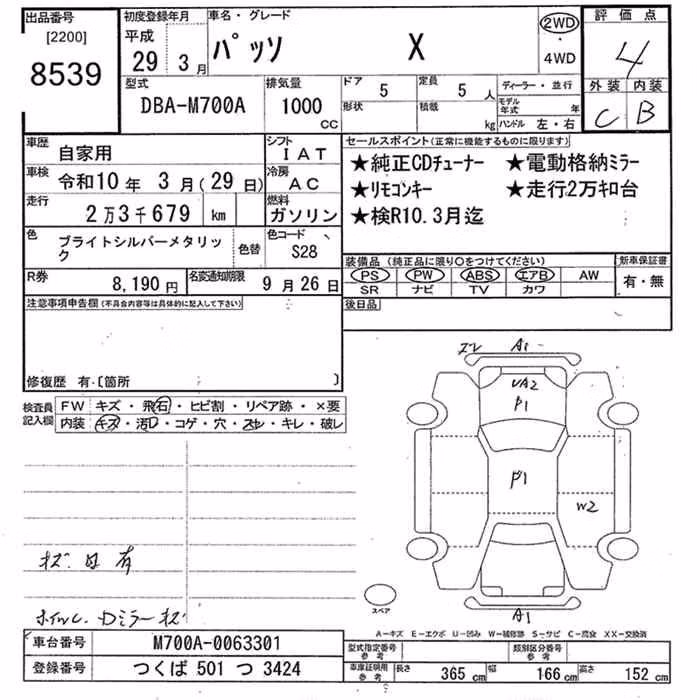 出品番号
[2200]
8539
初度登録年月
平成
29 3月
車名・グレード
パッソ X
2WD
・
4WD
評価点
4
外装 内装
C B
型式
DBA-M700A
排気量
1000
CC
ドア 5
定員 5人
形状
積載 kg
ディーラー・並行
モデル年式 年
ハンドル 左・右
車歴 自家用
シフト IAT
車検 令和10年 3月(29日)
冷房 AC
走行 2万3千679 km
燃料 ガソリン
色 ブライトシルバーメタリック
色替
色コード S28
R券 8,190円
名変通知期限 9月26日
セールスポイント(正常に機能するものに限ります)
★純正CDチューナー ★電動格納ミラー
★リモコンキー ★走行2万キロ台
★検R10.3月迄
装備品(純正品に限り○をつけてください)
PS PW ABS エアB AW
SR ナビ TV カワ
新車保証書
有・無
後日品
注意事項申告欄(不具合内容等は具体的に記入して下さい)
修復歴 有・〔箇所 〕
検査員記入欄
FW キズ・飛石・ヒビ割・リペア跡・×要
内装 キズ・汚レ・コゲ・穴・スレ・キレ・破レ
キズ 凹 有
ホイル、Dミラーキズ
エク A1
UA2
P1
P1
W2
A1
スペア
A-キズ E-エクボ U-凹み W-補修跡 S-サビ C-腐食 XX-交換済
車台番号 M700A-0063301
登録番号 つくば 501 つ 3424
型式指定番号
参考
類別区分番号
参考
車庫証明用
参考
長さ 365 cm 幅 166 cm 高さ 152 cm